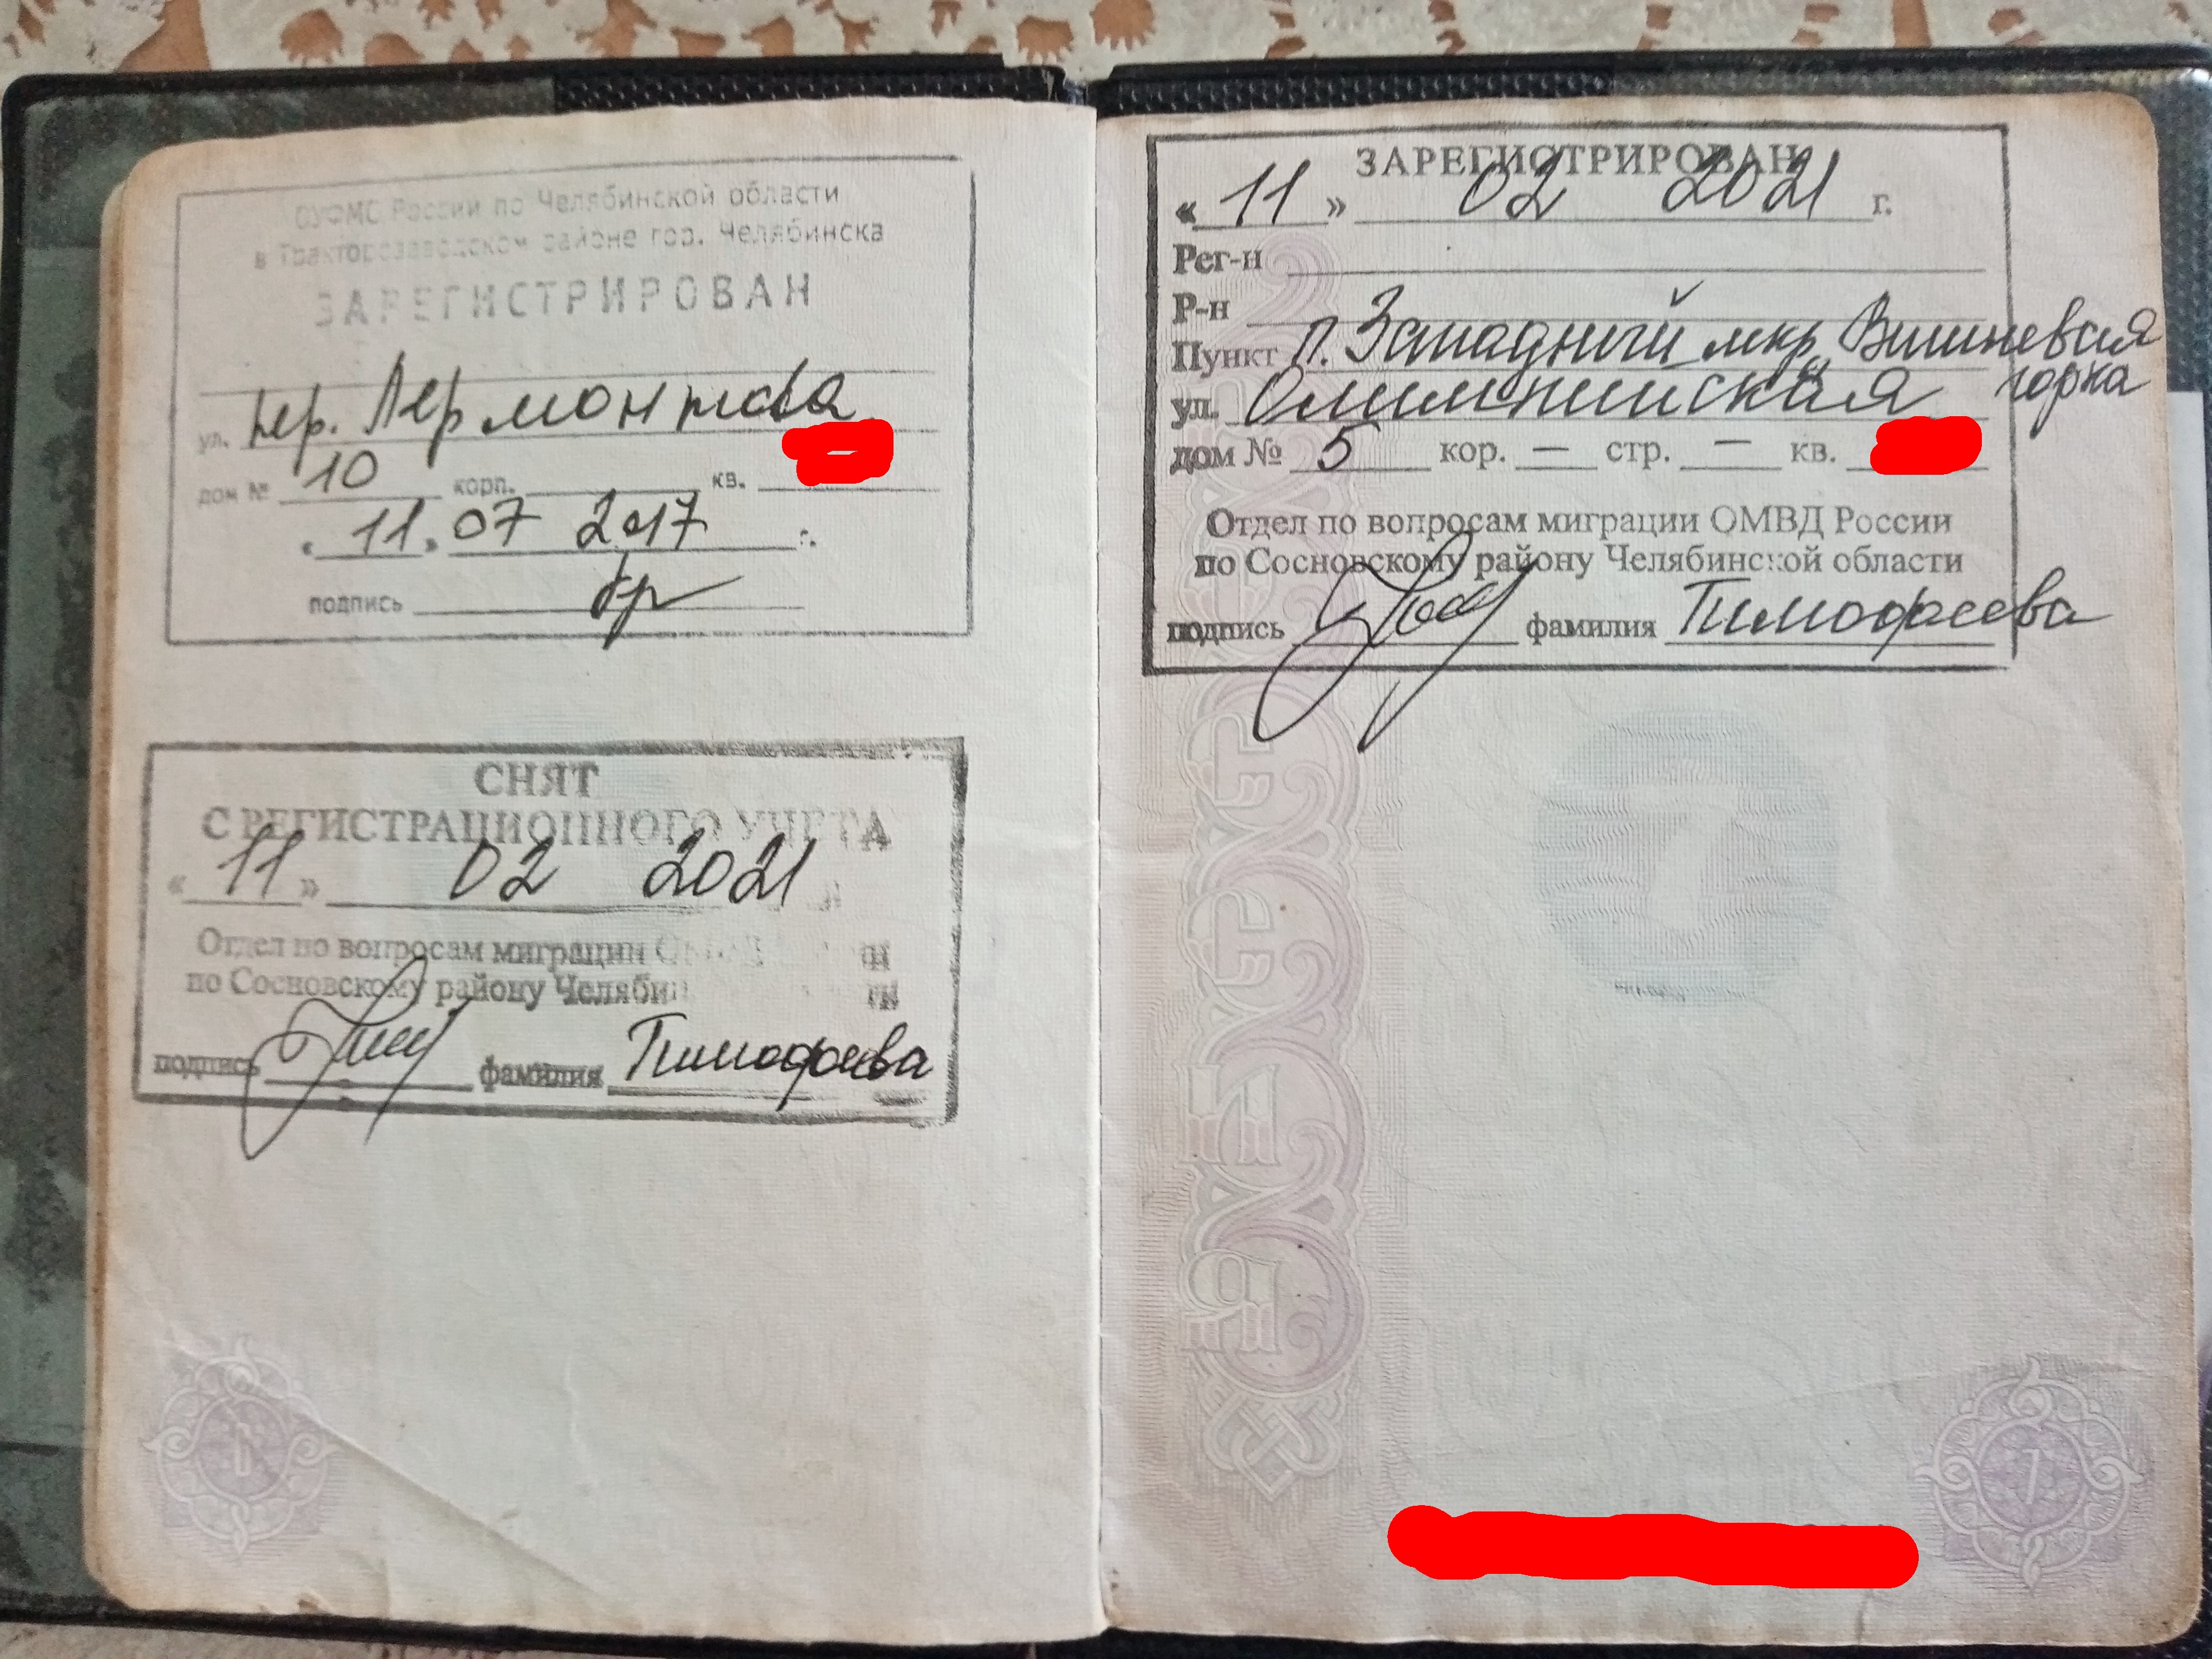 ОУФМС России по Челябинской области
в Тракторозаводском районе гор. Челябинска
ЗАРЕГИСТРИРОВАН
ул. пер. Лермонтова
дом № 10 корп. кв.
« 11 » 07 2017 г.
подпись
СНЯТ
С РЕГИСТРАЦИОННОГО УЧЕТА
« 11 » 02 2021
Отдел по вопросам миграции
по Сосновскому району
подпись фамилия Тимофеева
6
ЗАРЕГИСТРИРОВАН
« 11 » 02 2021 г.
Рег-н
Р-н
Пункт п. Западный мкр. Вишневая
горка
ул. Олимпийская
дом № 5 кор. — стр. — кв.
Отдел по вопросам миграции ОМВД России
по Сосновскому району Челябинской области
подпись фамилия Тимофеева
7
7